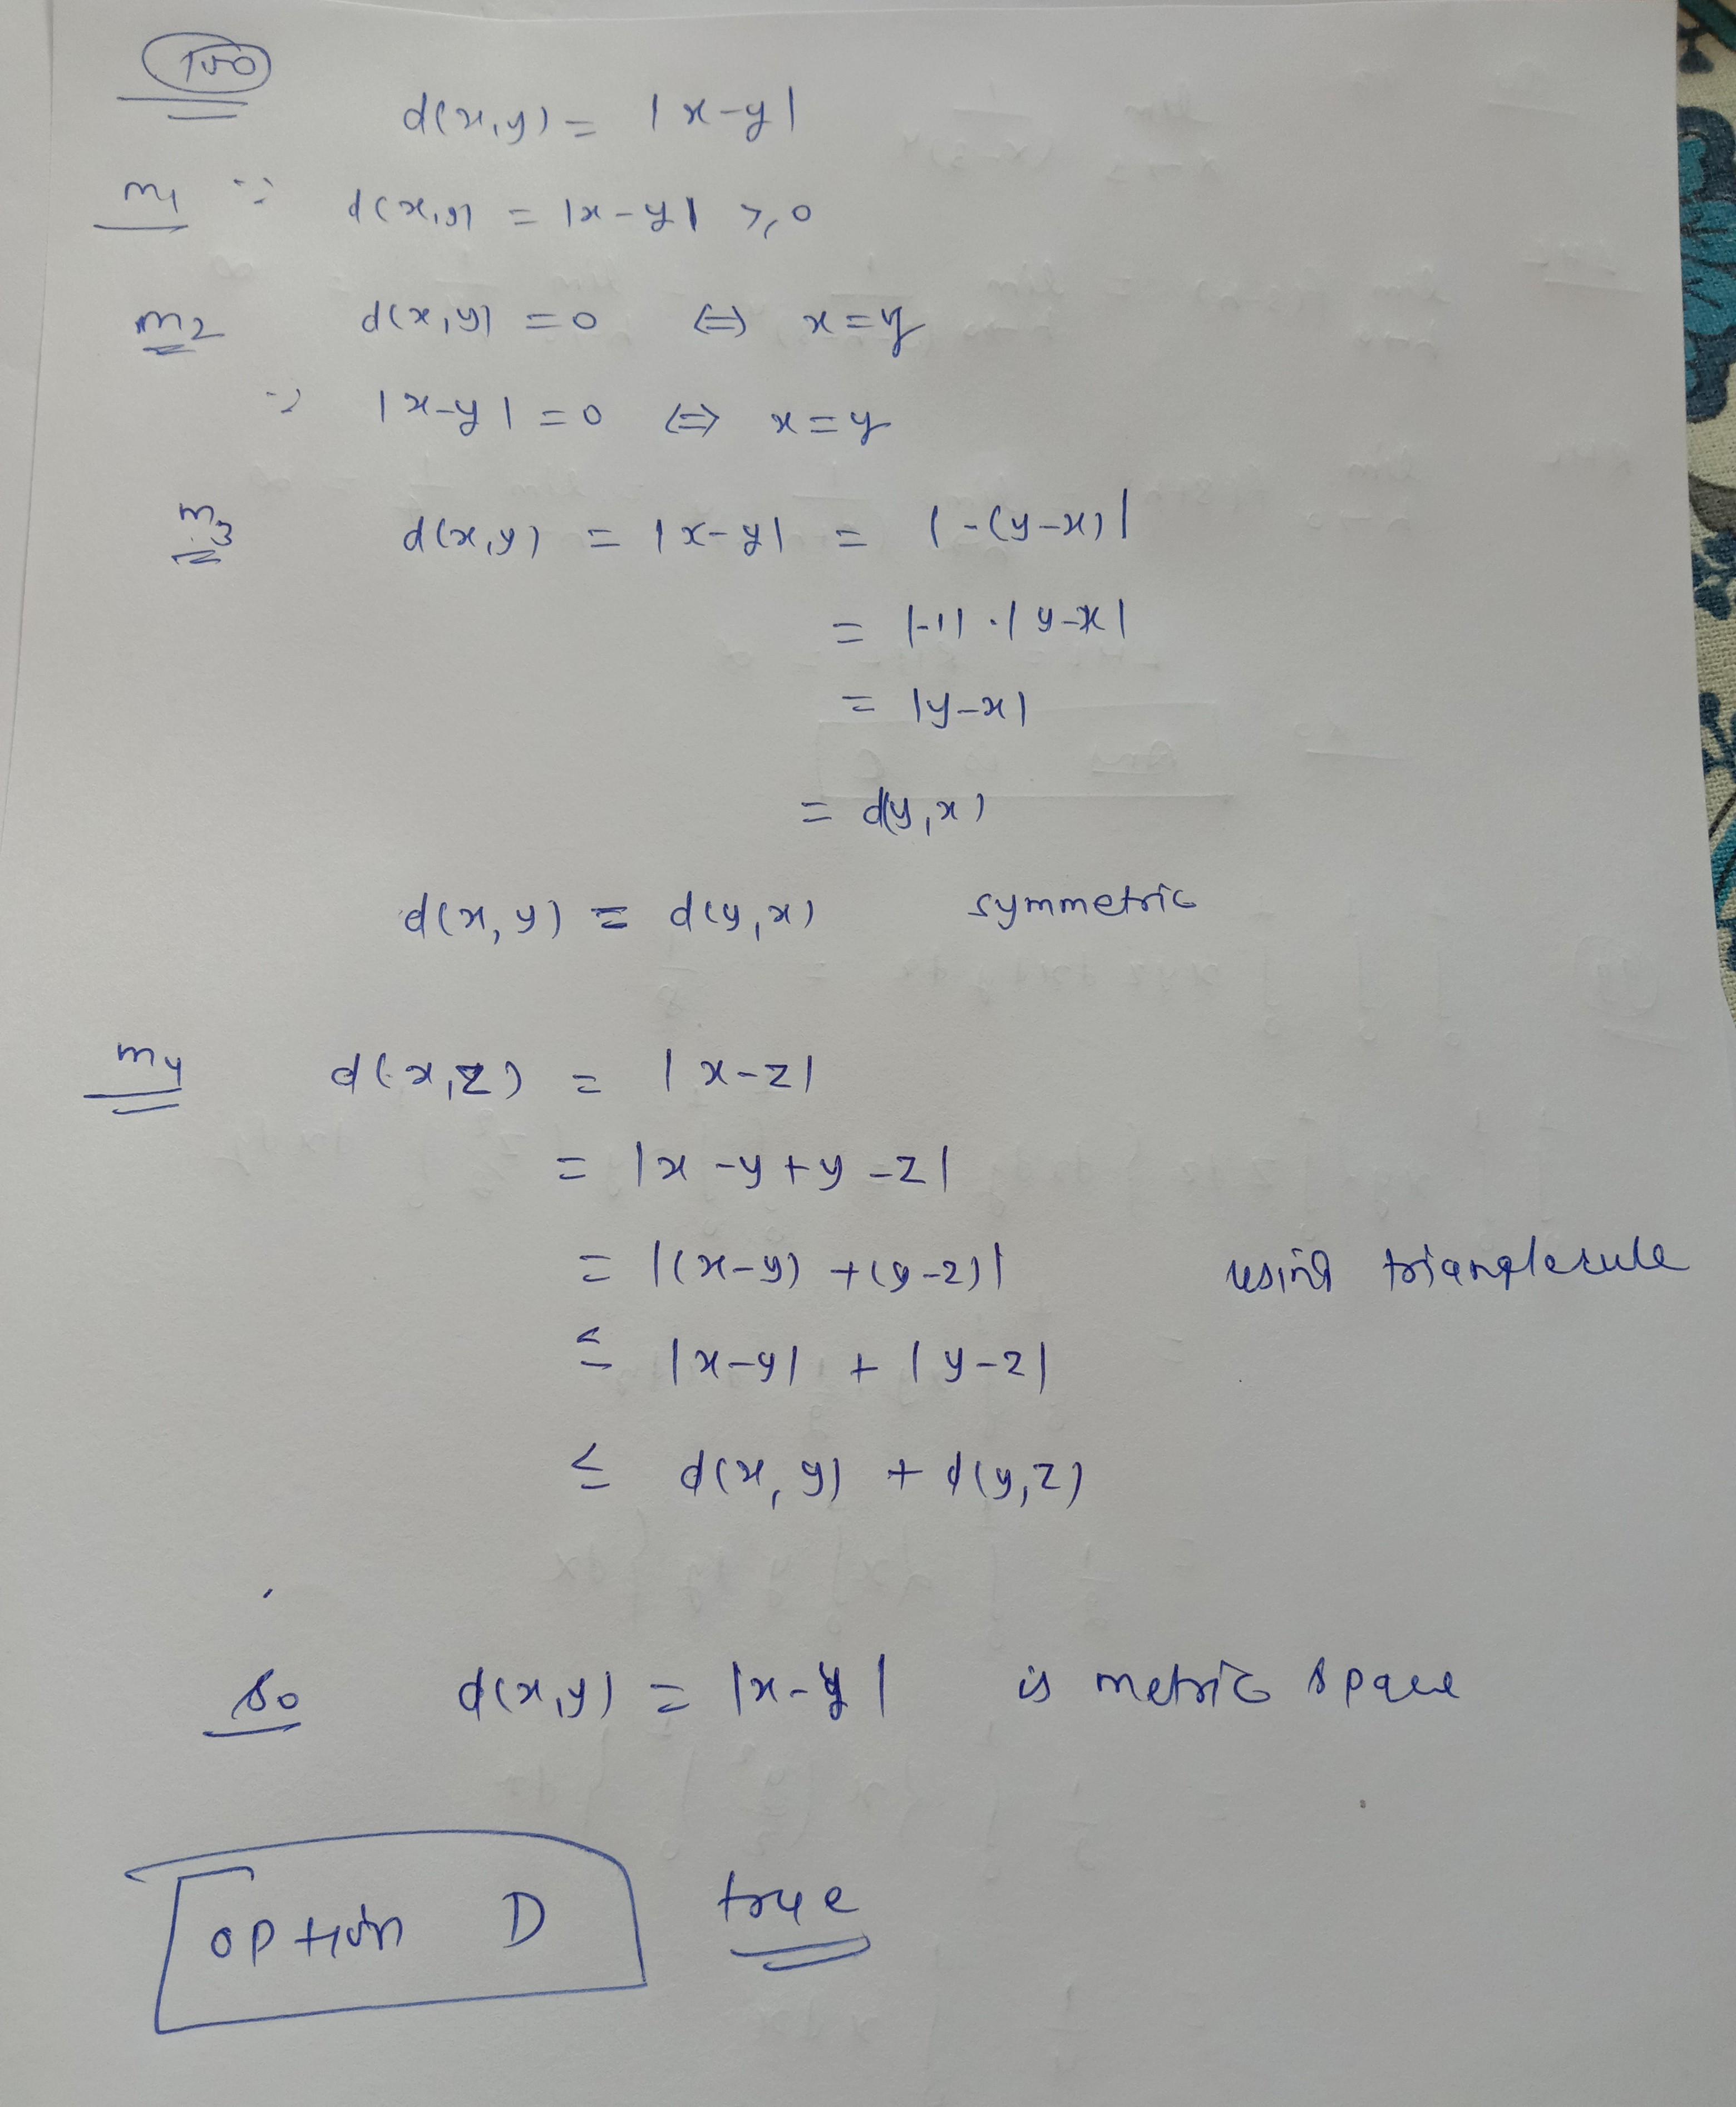 100
d(x,y) = |x-y|
m1 ∵ d(x,y) = |x-y| ≥ 0
m2 d(x,y) = 0 ⇔ x=y
∵ |x-y| = 0 ⇔ x=y
m3 d(x,y) = |x-y| = |-(y-x)|
= |-1|·|y-x|
= |y-x|
= d(y,x)
d(x,y) = d(y,x) symmetric
m4 d(x,z) = |x-z|
= |x-y+y-z|
= |(x-y)+(y-z)| using trianglerule
≤ |x-y| + |y-z|
≤ d(x,y) + d(y,z)
so d(x,y) = |x-y| is metric space
option D true